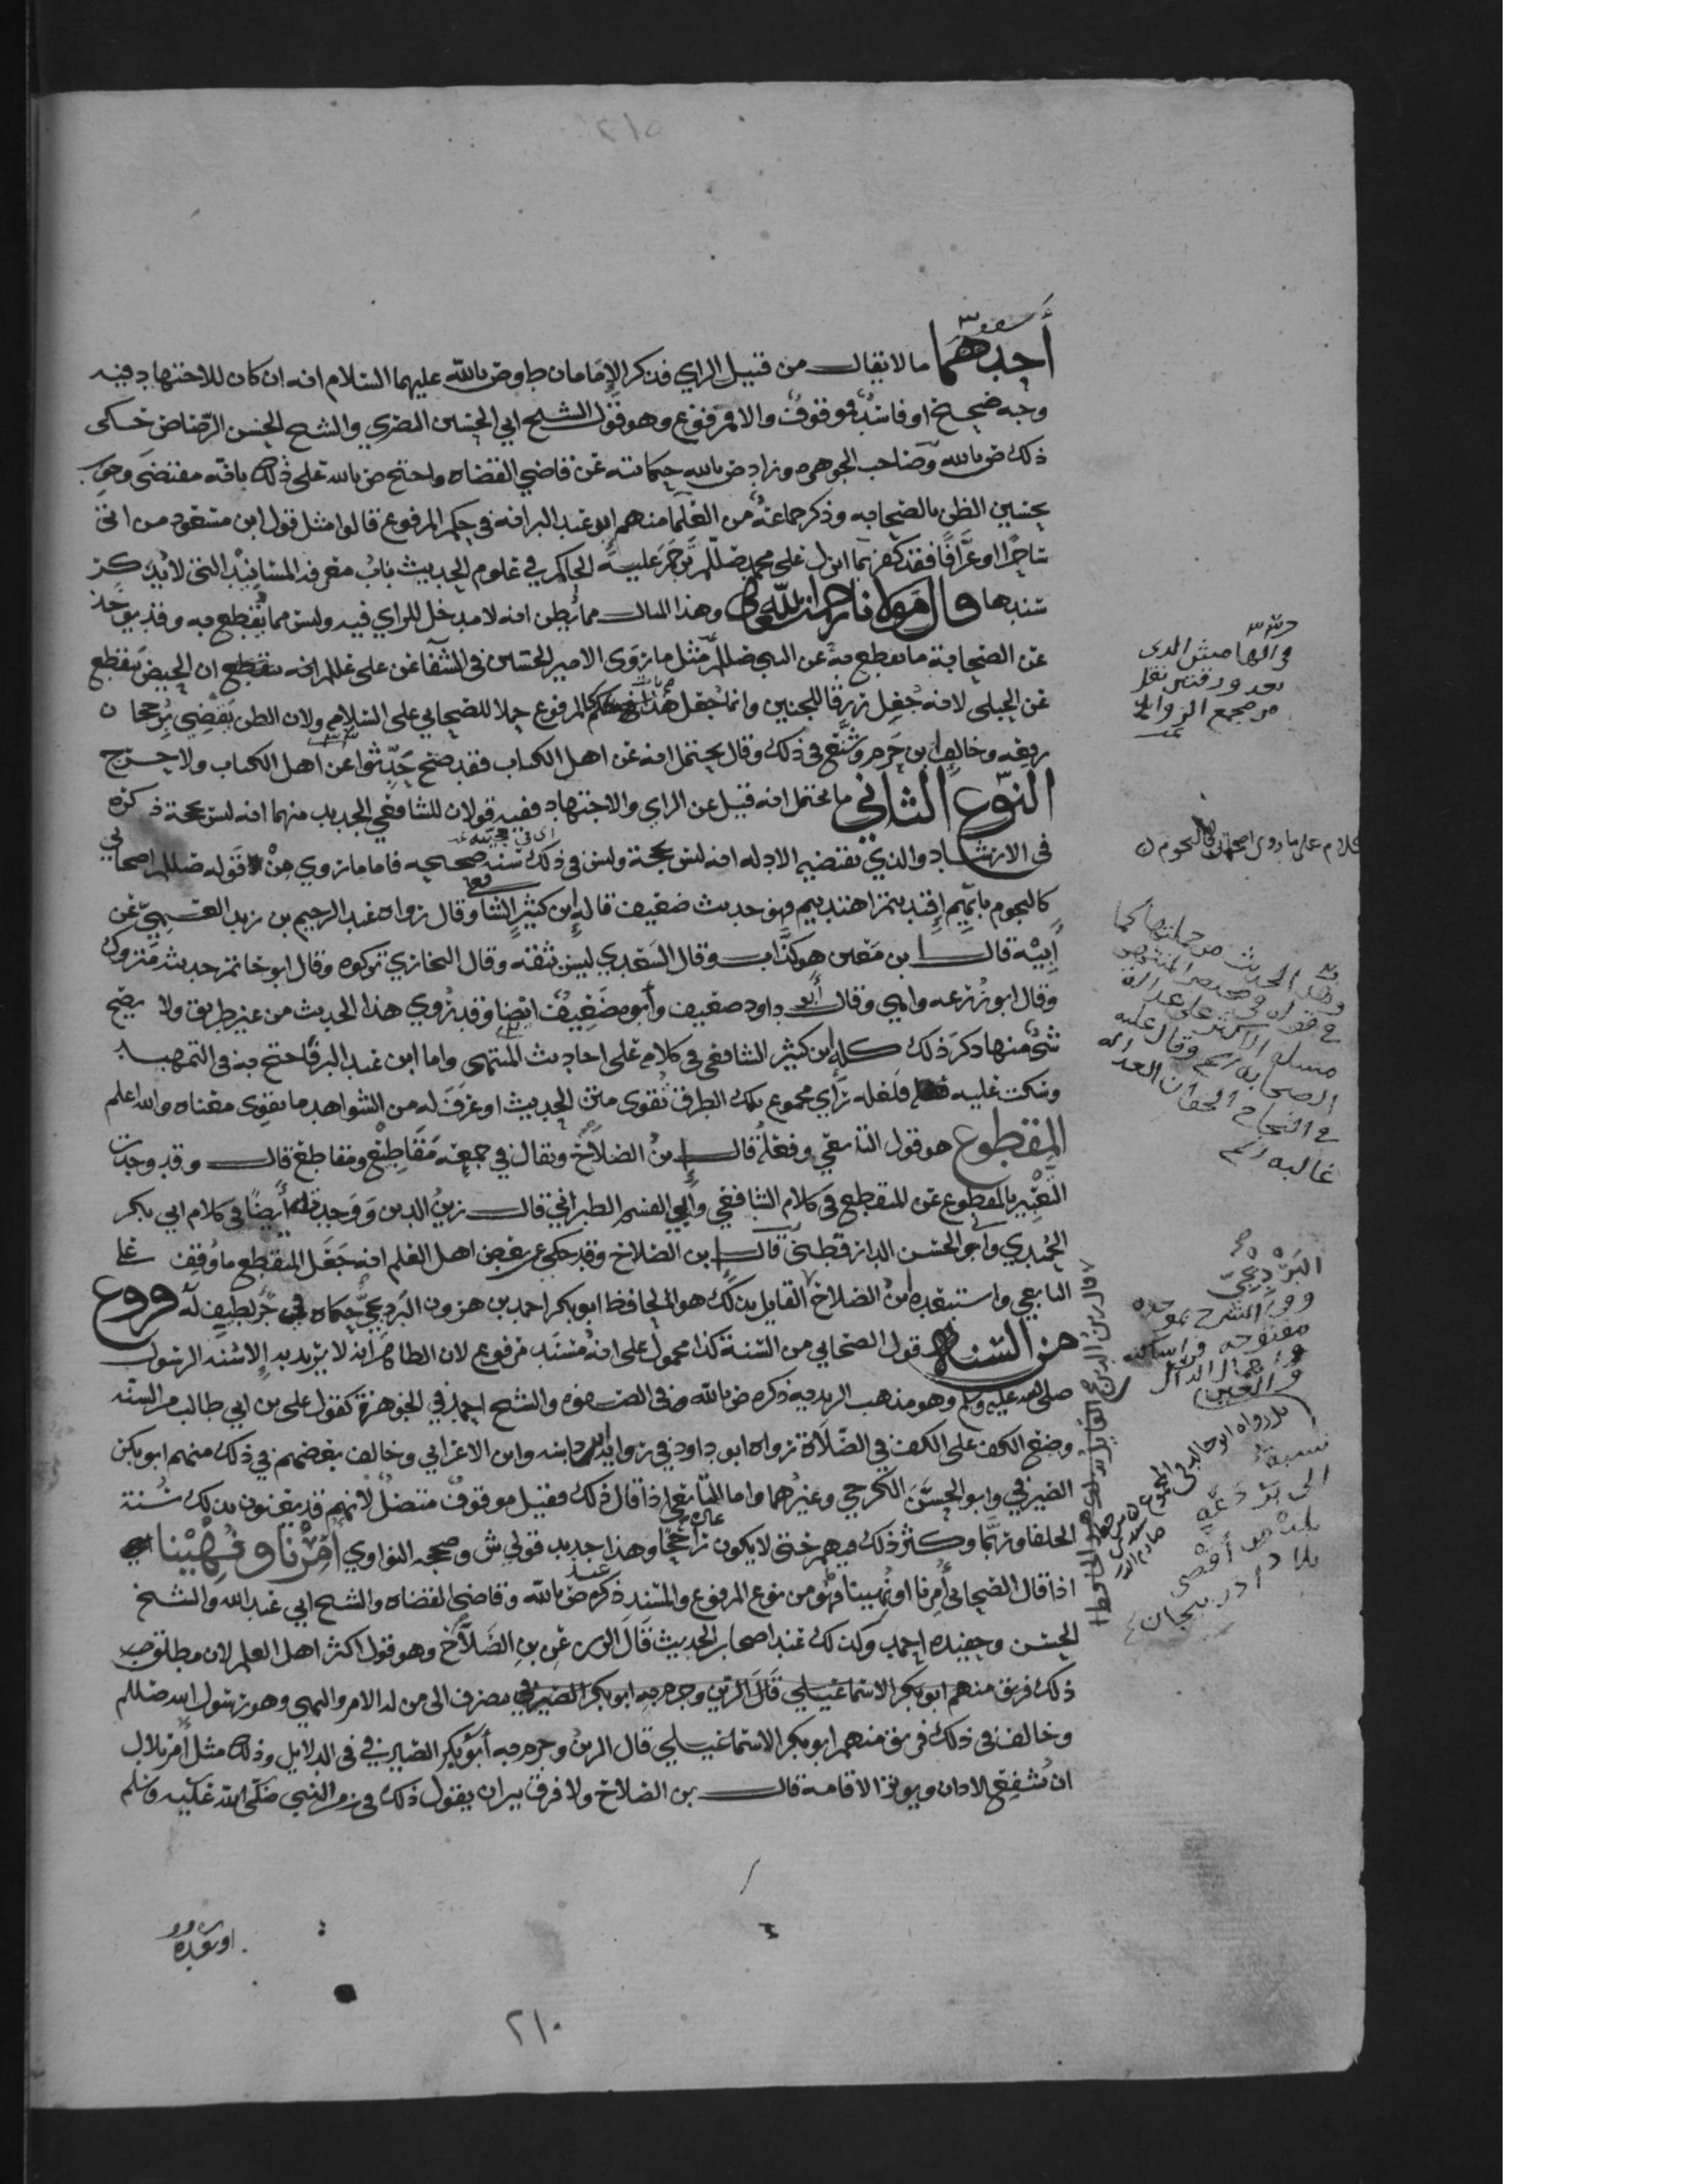 أحدهما ما لا يقال من قبيل الراي فذكر الإمامان ط وص بالله عليهما السلام انه ان كان للاجتهاد فيه
وجه صحيح او فاسد فموقوف والا فمرفوع وهو قول الشيخ ابي الحسين البصري والشيخ الحسن الرصاص حكى
ذلك ص بالله وصاحب الجوهره وزاد ص بالله حكايته عن قاضي القضاه واحتج ص بالله على ذلك بانه مقتضى وجوب
تحسين الظن بالصحابه وذكر جماعة من العلما منهم ابو عبد البر انه في حكم المرفوع قالوا مثل قول ابن مسعود من اتى
ساحرا او عرافا فقد كفر بما انزل على محمد صللم ترجم عليه الحاكم في علوم الحديث باب معرفه المسانيد التي لا يذكر
سندها قال مولانا وهذا المثال مما يظن انه لا مدخل للراي فيه وليس مما يقطع به وقد يوخذ
عن الصحابة ما يقطع به عن النبي صللم مثل ما روى الامير الحسين في الشفا عن علي عللم انه يقطع ان الحيض ينقطع
عن الحبلى لانه جعل رزقا للجنين وانما جعل هذا في حكم المرفوع حملا للصحابي على السلامه ولان الظن يقضي برجحان
رفعه وخالف ابن حزم وشنع في ذلك وقال يحتمل انه عن اهل الكتاب فقد صح حدثوا عن اهل الكتاب ولا حرج
النوع الثاني ما يحتمل انه قيل عن الراي والاجتهاد ففيه قولان للشافعي الجديد منهما انه ليس بحجة ذكره
في الارشاد والذي تقتضيه الادله انه ليس بحجة وليس في ذلك سنه صحيحه فاما ما روي من قوله صللم اصحابي
كالنجوم بايهم اقتديتم اهتديتم فهو حديث ضعيف قاله ابن كثير الشافعي وقال رواه عبد الرحيم بن زيد العمي عن
ابيه قال ابن معين هو كذاب وقال السعدي ليس بثقه وقال البخاري تركوه وقال ابو حاتم حديثه متروك
وقال ابو زرعه واهي وقال أبو داود ضعيف وأبوه ضعيف ايضا وقد روي هذا الحديث من غير طريق ولا يصح
شى منها ذكر ذلك كله ابن كثير الشافعي في كلامه على احاديث المنتهى واما ابن عبد البر فاحتج به في التمهيد
وسكت عليه فلعله راي مجموع تلك الطرق تقوى متن الحديث او عرف له من الشواهد ما يقوى معناه والله اعلم
المقطوع هو قول التابعي وفعله قال ابن الصلاح ويقال في جمعه مقاطيع ومقاطع قال وقد وجدت
التعبير بالمقطوع عن المنقطع في كلام الشافعي وأبي القسم الطبراني قال زين الدين ووجدته أيضا في كلام ابي بكر
الحميدي وابو الحسن الدارقطني قال ابن الصلاح وقد حكي عن بعض اهل العلم انه جعل المنقطع ما وقف على
التابعي واستبعده ابن الصلاح القايل بذلك هو الحافظ ابو بكر احمد بن هرون البرديجي حكاه في جزء لطيف له فروع
من السنة قول الصحابي من السنة كذا محمول على انه مسند مرفوع لان الظاهر انه لا يريد به الا سنه الرسول
صلى الله عليه وسلم وهو مذهب الزيديه ذكره ص بالله وفي الصفوه والشيخ احمد في الجوهرة كقول علي بن ابي طالب من السنه
وضع الكف على الكف في الصلاة رواه ابو داود في رواية ابن داسه وابن الاعرابي وخالف بعضهم في ذلك منهم ابو بكر
الصيرفي وابو الحسن الكرخي وغيرهما واما التابعي اذا قال ذلك فقيل موقوف متصل لأنهم قد يعنون بذلك سنة
الخلفا وربما وكثر ذلك فيهم حتى لا يكون راجحا وهذا جديد قولي ش وصححه النواوي أمرنا ونهينا
اذا قال الصحابي أمرنا او نهينا فهو من نوع المرفوع والمسند ذكره ص بالله وقاضي القضاه والشيخ ابي عبد الله والشيخ
الحسن وحفيده احمد وكذلك عند اصحاب الحديث قال الزين عن بن الصلاح وهو قول اكثر اهل العلم لان مطلق
ذلك فريق منهم ابو بكر الاسماعيلي قال الزين وجزم به ابو بكر الصيرفي يصرف الى من له الامر والنهي وهو رسول الله صللم
وخالف في ذلك فريق منهم ابو بكر الاسماعيلي قال الزين وجزم به أبو بكر الصيرفي في الدلايل وذلك مثل أمر بلال
ان يشفع الاذان ويوتر الاقامة قال بن الصلاح ولا فرق بين ان يقول ذلك في زمن النبي صلى الله عليه وسلم
في الهامش الذي
بعد ورقتين نقل
من مجمع الزوايد
كلام على ما روى اصحابي كالنجوم
البرديجي
مفتوحه
الى
أقصى
بلاد اذربيجان
او بعده
٢١٠